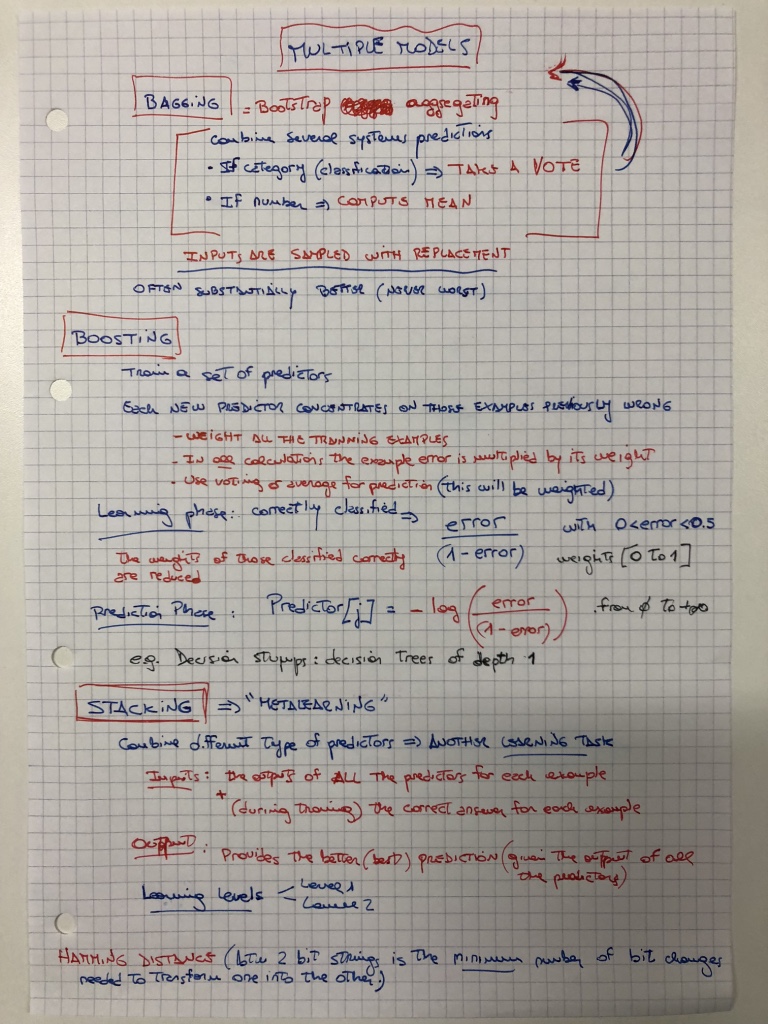 MULTIPLE MODELS
BAGGING = Bootstrap aggregating
Combine several systems predictions
• If category (classification) ⇒ TAKE A VOTE
• If number ⇒ COMPUTE MEAN
INPUTS ARE SAMPLED WITH REPLACEMENT
OFTEN SUBSTANTIALLY BETTER (NEVER WORST)
BOOSTING
Train a set of predictors
Each NEW PREDICTOR CONCENTRATES ON THOSE EXAMPLES PREVIOUSLY WRONG
- WEIGHT ALL THE TRAINNING EXAMPLES
- In all calculations the example error is multiplied by its weight
- Use voting or average for prediction (this will be weighted)
Learning phase: correctly classified ⇒ error / (1 - error) with 0 < error < 0.5
The weights of those classified correctly are reduced
weights [0 to 1]
Prediction Phase : Predictor[j] = - log ( error / (1 - error) ) . from ϕ to +∞
e.g. Decision stumps : decision trees of depth 1
STACKING ⇒ "METALEARNING"
Combine different type of predictors ⇒ ANOTHER LEARNING TASK
Inputs : the output of ALL the predictors for each example
+ (during training) the correct answer for each example
Output : Provides the better (best) PREDICTION (given the output of all
the predictors)
Learning levels Level 1
2
HAMMING DISTANCE (btw 2 bit strings is the minimum number of bit changes
needed to transform one into the other)